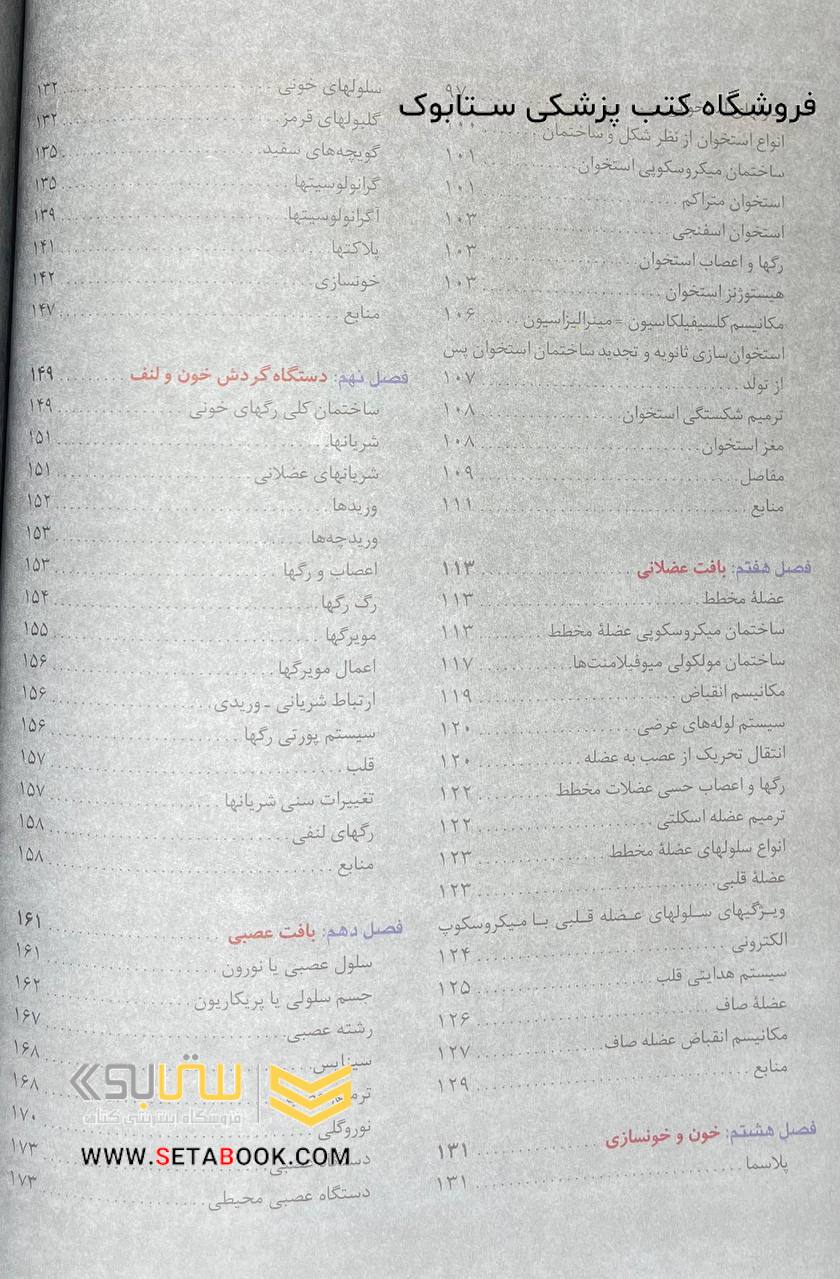 فروشگاه کتب پزشکی ستابوک
۹۷
انواع استخوان از نظر شکل و ساختمان
ساختمان میکروسکوپی استخوان ۱۰۱
استخوان متراکم ۱۰۱
استخوان اسفنجی ۱۰۳
رگها و اعصاب استخوان ۱۰۳
هیستوژنز استخوان ۱۰۳
مکانیسم کلسیفیکاسیون = مینرالیزاسیون ۱۰۶
استخوان‌سازی ثانویه و تجدید ساختمان استخوان پس
از تولد ۱۰۷
ترمیم شکستگی استخوان ۱۰۸
مغز استخوان ۱۰۸
مفاصل ۱۰۹
منابع ۱۱۱
فصل هفتم: بافت عضلانی ۱۱۳
عضلهٔ مخطط ۱۱۳
ساختمان میکروسکوپی عضلهٔ مخطط ۱۱۳
ساختمان مولکولی میوفیلامنت‌ها ۱۱۷
مکانیسم انقباض ۱۱۹
سیستم لوله‌های عرضی ۱۲۰
انتقال تحریک از عصب به عضله ۱۲۰
رگها و اعصاب حسی عضلات مخطط ۱۲۲
ترمیم عضله اسکلتی ۱۲۲
انواع سلولهای عضلهٔ مخطط ۱۲۳
عضلهٔ قلبی ۱۲۳
ویژگیهای سلولهای عضله قلبی با میکروسکوپ
الکترونی ۱۲۴
سیستم هدایتی قلب ۱۲۵
عضلهٔ صاف ۱۲۶
مکانیسم انقباض عضله صاف ۱۲۷
منابع ۱۲۹
فصل هشتم: خون و خونسازی ۱۳۱
پلاسما ۱۳۱
سلولهای خونی ۱۳۲
گلبولهای قرمز ۱۳۲
گویچه‌های سفید ۱۳۵
گرانولوسیتها ۱۳۵
آگرانولوسیتها ۱۳۹
پلاکتها ۱۴۱
خونسازی ۱۴۲
منابع ۱۴۷
فصل نهم: دستگاه گردش خون و لنف ۱۴۹
ساختمان کلی رگهای خونی ۱۴۹
شریانها ۱۵۱
شریانهای عضلانی ۱۵۱
وریدها ۱۵۲
وریدچه‌ها ۱۵۳
اعصاب و رگها ۱۵۳
رگ رگها ۱۵۴
مویرگها ۱۵۵
اعمال مویرگها ۱۵۶
ارتباط شریانی - وریدی ۱۵۶
سیستم پورتی رگها ۱۵۶
قلب ۱۵۷
تغییرات سنی شریانها ۱۵۷
رگهای لنفی ۱۵۸
منابع ۱۵۸
فصل دهم: بافت عصبی ۱۶۱
سلول عصبی یا نورون ۱۶۱
جسم سلولی یا پریکاریون ۱۶۲
رشته عصبی ۱۶۷
سیناپس ۱۶۸
۱۶۸
نوروگلی ۱۷۰
۱۷۳
دستگاه عصبی محیطی ۱۷۳
ستابوک
فروشگاه اینترنتی کتاب
WWW.SETABOOK.COM